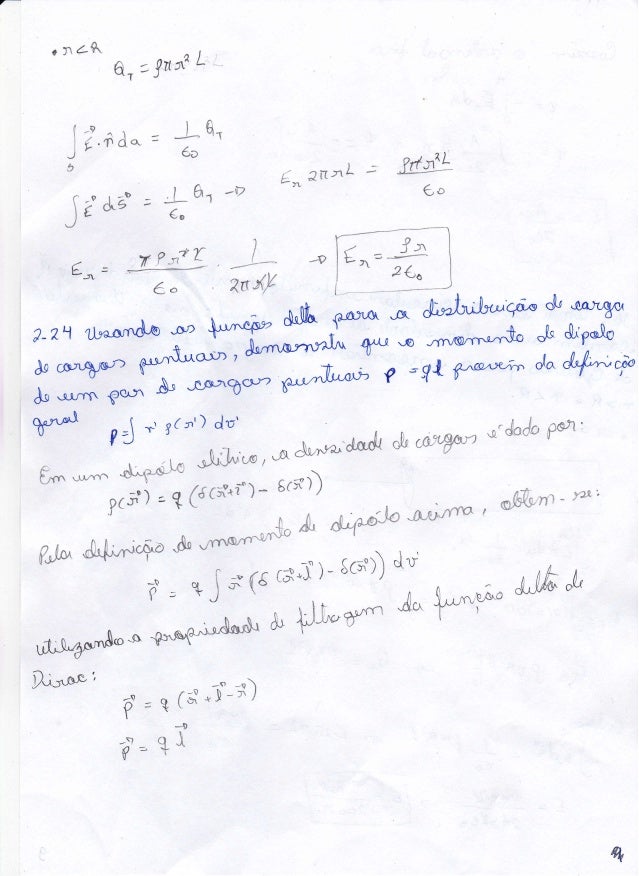 • r<R
Q_T = ρπr² L
∫_S E⃗·n̂ da = 1/ε₀ Q_T
∫ E⃗ ds⃗ = 1/ε₀ Q_T → E_r 2πrL = ρπr²L/ε₀
E_r = πρr²L/ε₀ · 1/2πrL → E_r = ρr/2ε₀
2-24 Usando as funções delta para a distribuição de carga
de cargas puntuais, demonstre que o momento de dipolo
de um par de cargas puntuais p = ql provém da definição
geral
p = ∫ r' ρ(r') dv'
Em um dipólo elétrico, a densidade de cargas é dada por:
ρ(r⃗) = q (δ(r⃗+l⃗) - δ(r⃗))
Pela definição de momento de dipólo acima, obtem-se:
p⃗ = q ∫ r⃗ (δ(r⃗+l⃗) - δ(r⃗)) dv'
utilizando a propriedade de filtragem da função delta de
Dirac:
p⃗ = q (r⃗ + l⃗ - r⃗)
p⃗ = q l⃗